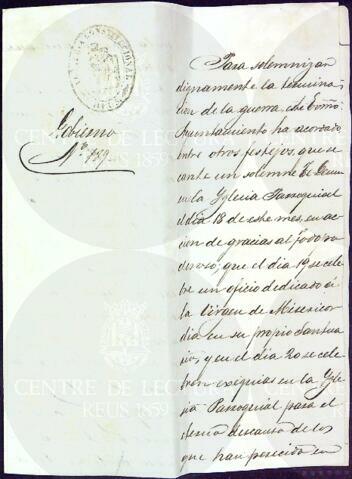 ALCALDIA CONSTITUCIONAL
REUS
Gobierno
Nº 139.
Para solemnizar
dignamente la termina-
cion de la guerra, este Exmo
Ayuntamiento ha acordado,
entre otros festejos, que se
cante un solemne Te Deum
en la Yglesia Parroquial
el dia 18 de este mes, en ac-
cion de gracias al Todo Po-
deroso; que el dia 19 se cele-
bre un oficio dedicado á
la Virgen de Misericor
dia en su propio Santua
rio, y en el dia 20 se cele-
bren exequias en la Ygle
sia Parroquial para el
eterno descanso de los
que han perecido en
CENTRE DE LECTURA
REUS 1859